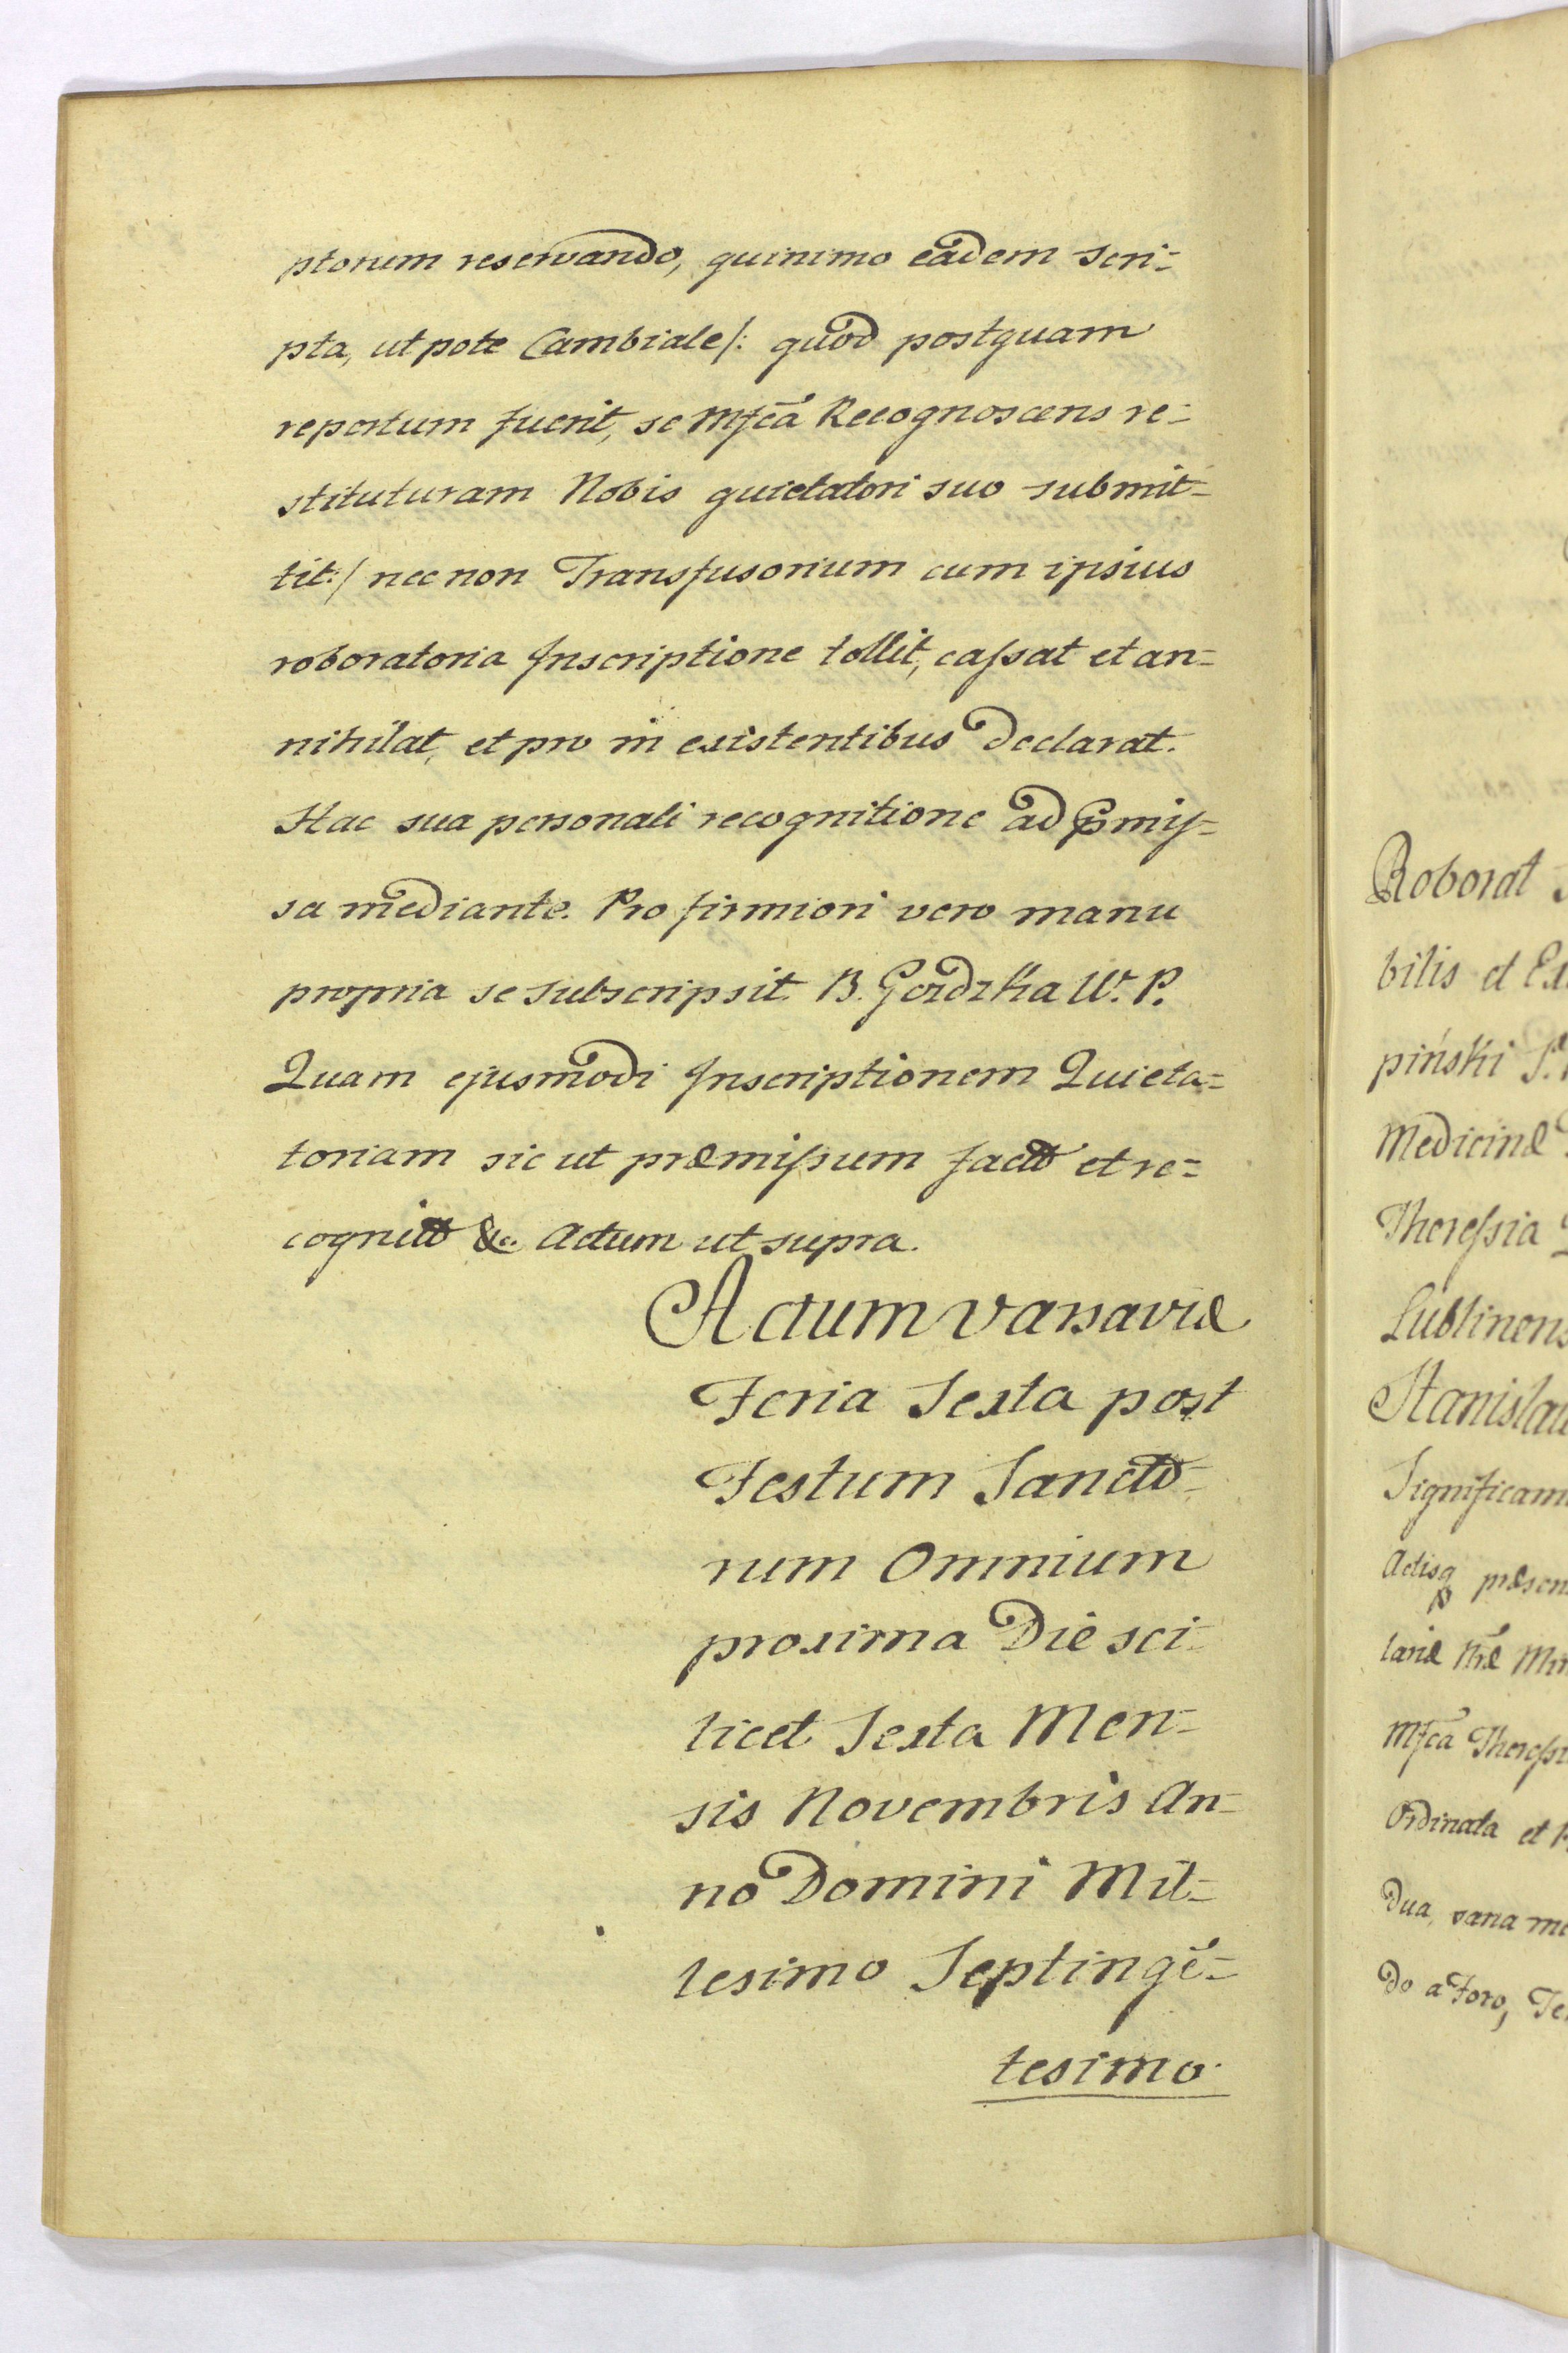 ptorum reservando, quinimo eadem scri=
pta, ut pote Cambiale /: quod postquam
repertum fuerit, se Mfcā Recognoscens re=
stituturam Nobis quietatori suo submit=
tit :/ nec non Transfusorium cum ipsius
roboratoria Inscriptione tollit, caſsat et an=
nihilat, et pro in existentibus declarat.
Hac sua personali recognitione ad pmiſ=
sa mediante. Pro firmiori vero manu
propria se subscripsit. B. Gozdzka W. P.
Quam ejusmodi Inscriptionem Quieta=
toriam sic ut præmiſsum facto et re=
cognito &c. Actum ut supra.
Actum Varsaviæ
Feria Sexta post
Festum Sancto=
rum Omnium
proxima Die sci=
licet Sexta Men=
sis Novembris An=
no Domini Mil=
lesimo Septingē=
tesimo.
Roborat
bilis et Ex
piński S.
Medicinæ
Thereſsia
Lublinens
Stanislau
Significam
Actisq præsen
lariæ Nræ Min
Mfcā Thereſsi
Ordinata et
Dua, vana me
do a Foro, Te